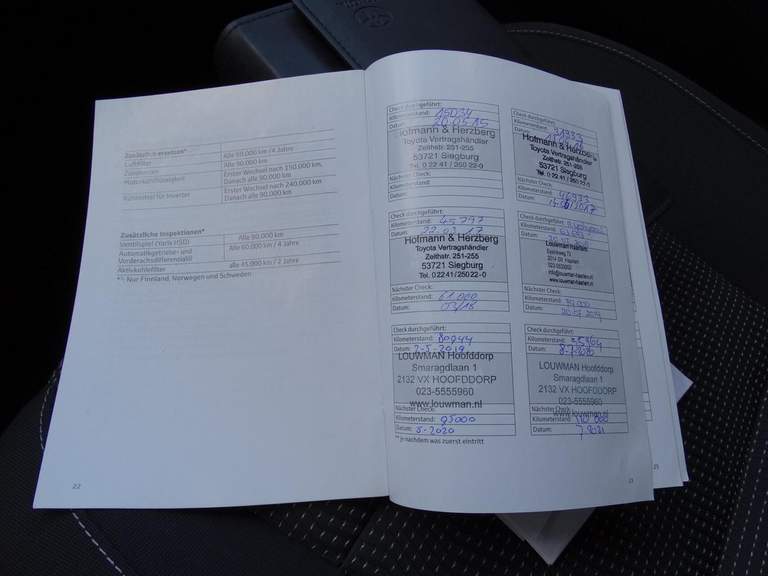 Zusätzlich ersetzen*
Luftfilter
Zündkerzen
Motorkühlflüssigkeit
Kühlmittel für Inverter
Alle 90.000 km
Erster Wechsel nach 150.000 km,
Danach alle 90.000 km
Erster Wechsel nach 240.000 km
Danach alle 90.000 km
Zusätzliche Inspektionen*
Ventilspiel (Yaris HSD)
Alle 90.000 km
Automatikgetriebe- und
Vorderachsdifferenzialöl
Alle 60.000 km / 4 Jahre
Aktivkohlefilter
alle 45.000 km / 2 Jahre
Nur Finnland, Norwegen und Schweden
22
Check durchgeführt:
Kilometerstand: 15034
Datum: 20.05.15
Hofmann & Herzberg
Toyota Vertragshändler
Zeithstr. 251-255
53721 Siegburg
Tel. 0 22 41 / 250 22-0
Nächster Check:
Kilometerstand:
Datum:
Check durchgeführt:
Kilometerstand: 31333
Datum:
Hofmann & Herzberg
Toyota Vertragshändler
Zeithstr. 251-255
53721 Siegburg
Tel. 0 22 41 / 250 22-0
Nächster Check:
Kilometerstand: 46333
Datum:
Check durchgeführt:
Kilometerstand: 45797
Datum: 22.03.17
Hofmann & Herzberg
Toyota Vertragshändler
Zeithstr. 251-255
53721 Siegburg
Tel. 02241/25022-0
Nächster Check:
Kilometerstand: 61.000
Datum: 03/18
Check durchgeführt:
Kilometerstand:
Datum:
Louwman Haarlem
www.louwman-haarlem.nl
Nächster Check:
Kilometerstand:
Datum:
Check durchgeführt:
Kilometerstand: 80944
Datum: 2-5-2019
LOUWMAN Hoofddorp
Smaragdlaan 1
2132 VX HOOFDDORP
023-5555960
www.louwman.nl
Nächster Check:
Kilometerstand: 95000
Datum: 5-2020
Check durchgeführt:
Kilometerstand:
Datum:
LOUWMAN Hoofddorp
Smaragdlaan 1
2132 VX HOOFDDORP
023-5555960
www.louwman.nl
Nächster Check:
Kilometerstand:
Datum: 7 2021
** Je nachdem was zuerst eintritt